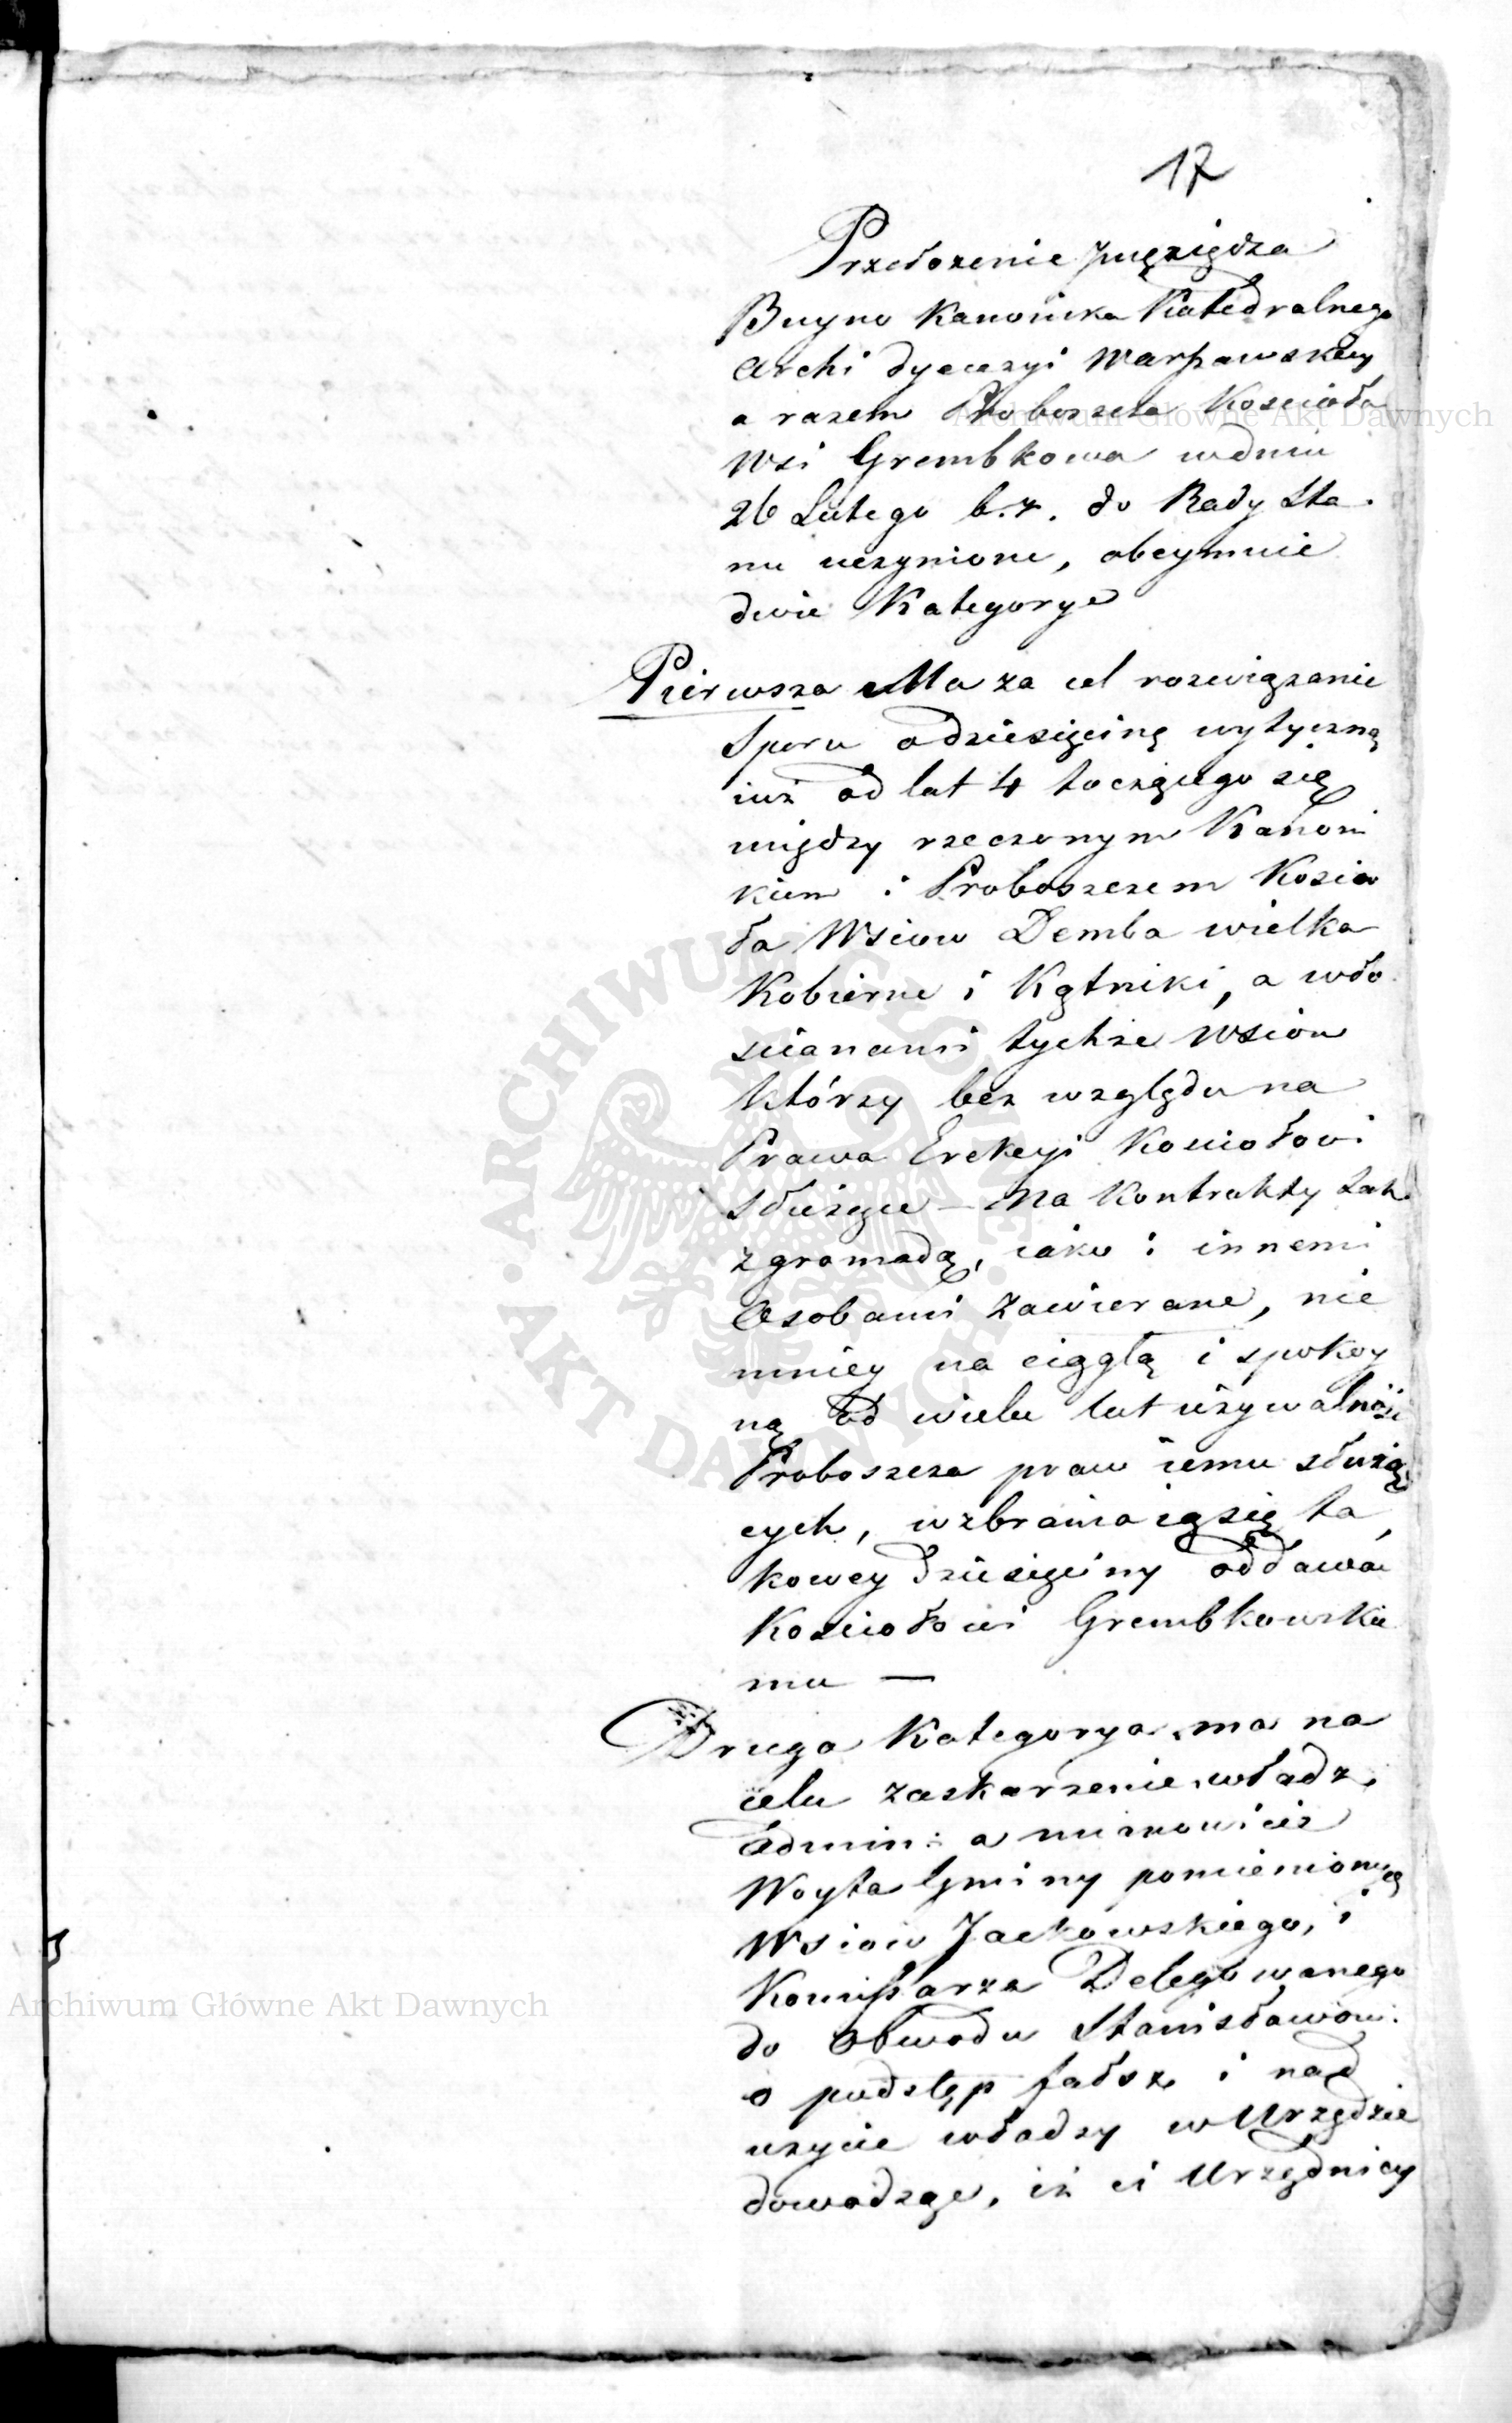 17
Przełozenie przez xiędza
Buyno Kanonika Katedralnego
Archi dyecezyi Warszawskiey
a razem Proboszcza Koscioła
Wsi Grembkowa wdniu
26 Lutego b.r. do Rady Sta-
nu uczynione, obeymuie
dwie Kategorye
Pierwsza Ma za cel rozwiązanie
Sporu odziesięcinę wytyczną
iuż od lat 4 toczącego się
między rzeczonym Kanoni
kiem i Proboszczem Koscio
ła Wsiow Demba wielka
Kobierne i Kątniki, a wło
scianami tychże Wsiow
którzy bez względu na
Prawa Erekcyi Kosciołowi
służące – na Kontrakty tak
z gromadą, iako i innemi
Osobami zawierane, nie
mniey na ciągłą i spokoy
ną od wielu lat używalność
Proboszcza praw iemu służą
cych, wzbraniaią się ta
kowey dziesięciny oddawać
Kosciołowi Grembkowskie
mu —
Druga Kategorya ma na
celu zaskarzenie władz
Admin: a mianowicie
Woyta Gminy pomienionych
Wsiow Jackowskiego, i
Komissarza Delegowanego
do Obwodu Stanisławow:
o podstęp fałsz i nad
uzycie władzy w Urzędzie
dowodząc, iż ci Urzędnicy
Archiwum Główne Akt Dawnych
Archiwum Główne Akt Dawnych
ARCHIWUM GŁÓWNE · AKT DAWNYCH ·